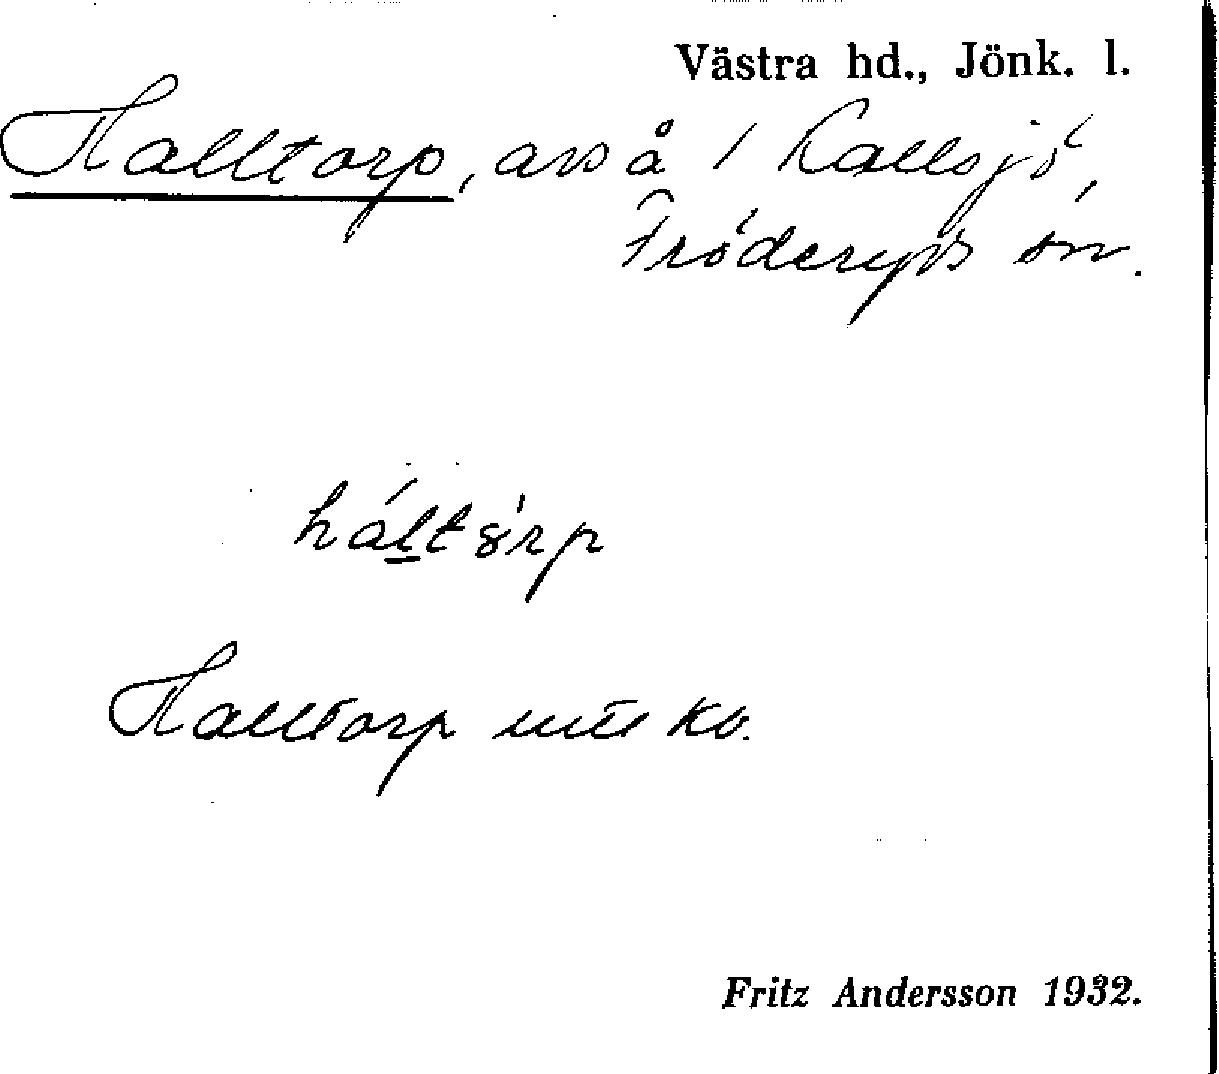 Västra hd., Jönk. l.
Halltorp, avs å 1 Kallsjö,
Fröderyds sn.
háltȣ̀rp
Halltorp Kb.
Fritz Andersson 1932.